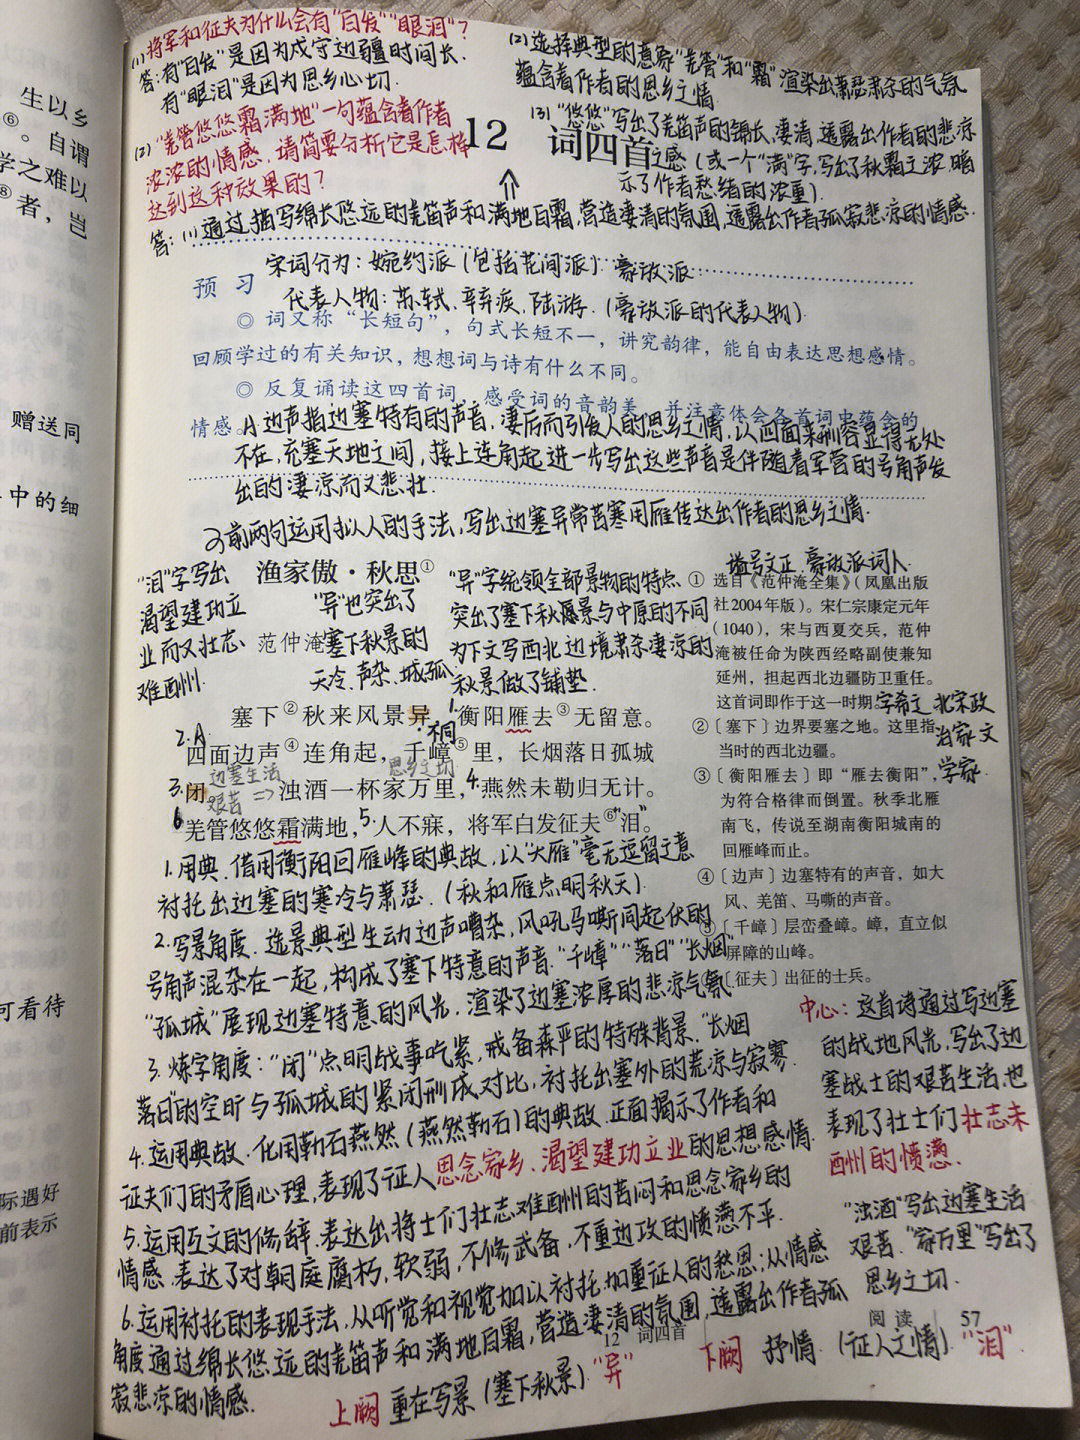 生以乡
⑥。自谓
学之难以
⑧者，岂
赠送同
中的细
可看待
际遇好
前表示
(1)将军和征夫为什么会有"白发""眼泪"？
答:有"白发"是因为戍守边疆时间长.
有"眼泪"是因为思乡心切.
(2)"羌管悠悠霜满地"一句蕴含着作者
浓浓的情感，请简要分析它是怎样
达到这种效果的？
(2)选择典型的意象"羌管"和"霜"渲染出萧瑟肃杀的气氛
蕴含着作者的思乡之情
(3)"悠悠"写出了羌笛声的绵长、凄清,透露出作者的悲凉
之感（或一个"满"字,写出了秋霜之浓,暗
示了作者愁绪的浓重).
12 词四首
答:(1)通过描写绵长悠远的羌笛声和满地白霜,营造凄清的氛围,透露出作者孤寂悲凉的情感.
宋词分为:婉约派(包括花间派).豪放派
预 习
代表人物:苏轼、辛弃疾、陆游.(豪放派的代表人物)
◎ 词又称“长短句”，句式长短不一，讲究韵律，能自由表达思想感情。
回顾学过的有关知识，想想词与诗有什么不同。
◎ 反复诵读这四首词，感受词的音韵美，并注意体会各首词中蕴含的
情感。
A边声指边塞特有的声音,凄厉而引发人的思乡之情,以四面来形容显得无处
不在,充塞天地之间,接上连角起进一步写出这些声音是伴随着军营的号角声发
出的凄凉而又悲壮.
前两句运用拟人的手法,写出边塞异常苦寒用雁传达出作者的思乡之情.
"泪"字写出
渴望建功立
业而又壮志
难酬州.
渔家傲·秋思①
范仲淹
"异"也突出了
塞下秋景的
天冷、声杂、城孤
"异"字统领全部景物的特点
突出了塞下秋愿景与中原的不同
为下文写西北边境肃杀凄凉的
秋景做了铺垫.
塞下②秋来风景异，衡阳雁去③无留意。
不同
四面边声④连角起，千嶂⑤里，长烟落日孤城
边塞生活
艰苦
思乡之切
闭。浊酒一杯家万里，燕然未勒归无计。
羌管悠悠霜满地，人不寐，将军白发征夫⑥泪。
谥号文正.豪放派词人
① 选自《范仲淹全集》（凤凰出版
社2004年版）。宋仁宗康定元年
（1040），宋与西夏交兵，范仲
淹被任命为陕西经略副使兼知
延州，担起西北边疆防卫重任。
这首词即作于这一时期。
字希文 北宋政
治家文
学家.
②〔塞下〕边界要塞之地。这里指
当时的西北边疆。
③〔衡阳雁去〕即“雁去衡阳”，
为符合格律而倒置。秋季北雁
南飞，传说至湖南衡阳城南的
回雁峰而止。
④〔边声〕边塞特有的声音，如大
风、羌笛、马嘶的声音。
⑤〔千嶂〕层峦叠嶂。嶂，直立似
屏障的山峰。
〔征夫〕出征的士兵。
1.用典.借用衡阳回雁峰的典故,以"大雁"毫无逗留之意
衬托出边塞的寒冷与萧瑟.(秋和雁点明秋天)
2.写景角度.选景典型生动边声嘈杂,风吼马嘶同起伏的
号角声混杂在一起,构成了塞下特意的声音."千嶂""落日""长烟"
"孤城"展现边塞特意的风光.渲染了边塞浓厚的悲凉气氛
3.炼字角度:"闭"点明战事吃紧,戒备森严的特殊背景."长烟
落日"的空旷与孤城的紧闭形成对比,衬托出塞外的荒凉与寂寥.
4.运用典故.化用勒石燕然(燕然勒石)的典故.正面揭示了作者和
征夫们的矛盾心理,表现了征人思念家乡、渴望建功立业的思想感情.
5.运用互文的修辞.表达出将士们壮志难酬州的苦闷和思念家乡的
情感.表达了对朝庭腐朽,软弱,不修武备,不重边攻的愤懑不平.
6.运用衬托的表现手法,从听觉和视觉加以衬托,加重征人的愁思;从情感
角度通过绵长悠远的羌笛声和满地白霜,营造凄清的氛围,透露出作者孤
寂悲凉的情感.
中心:这首诗通过写边塞
的战地风光,写出了边
塞战士的艰苦生活,也
表现了壮士们壮志未
酬州的愤懑.
"浊酒"写出边塞生活
艰苦."家万里"写出了
思乡之切.
12 词四首
阅读 57
上阙 重在写景(塞下秋景)"异"
下阙 抒情.(征人之情)"泪"